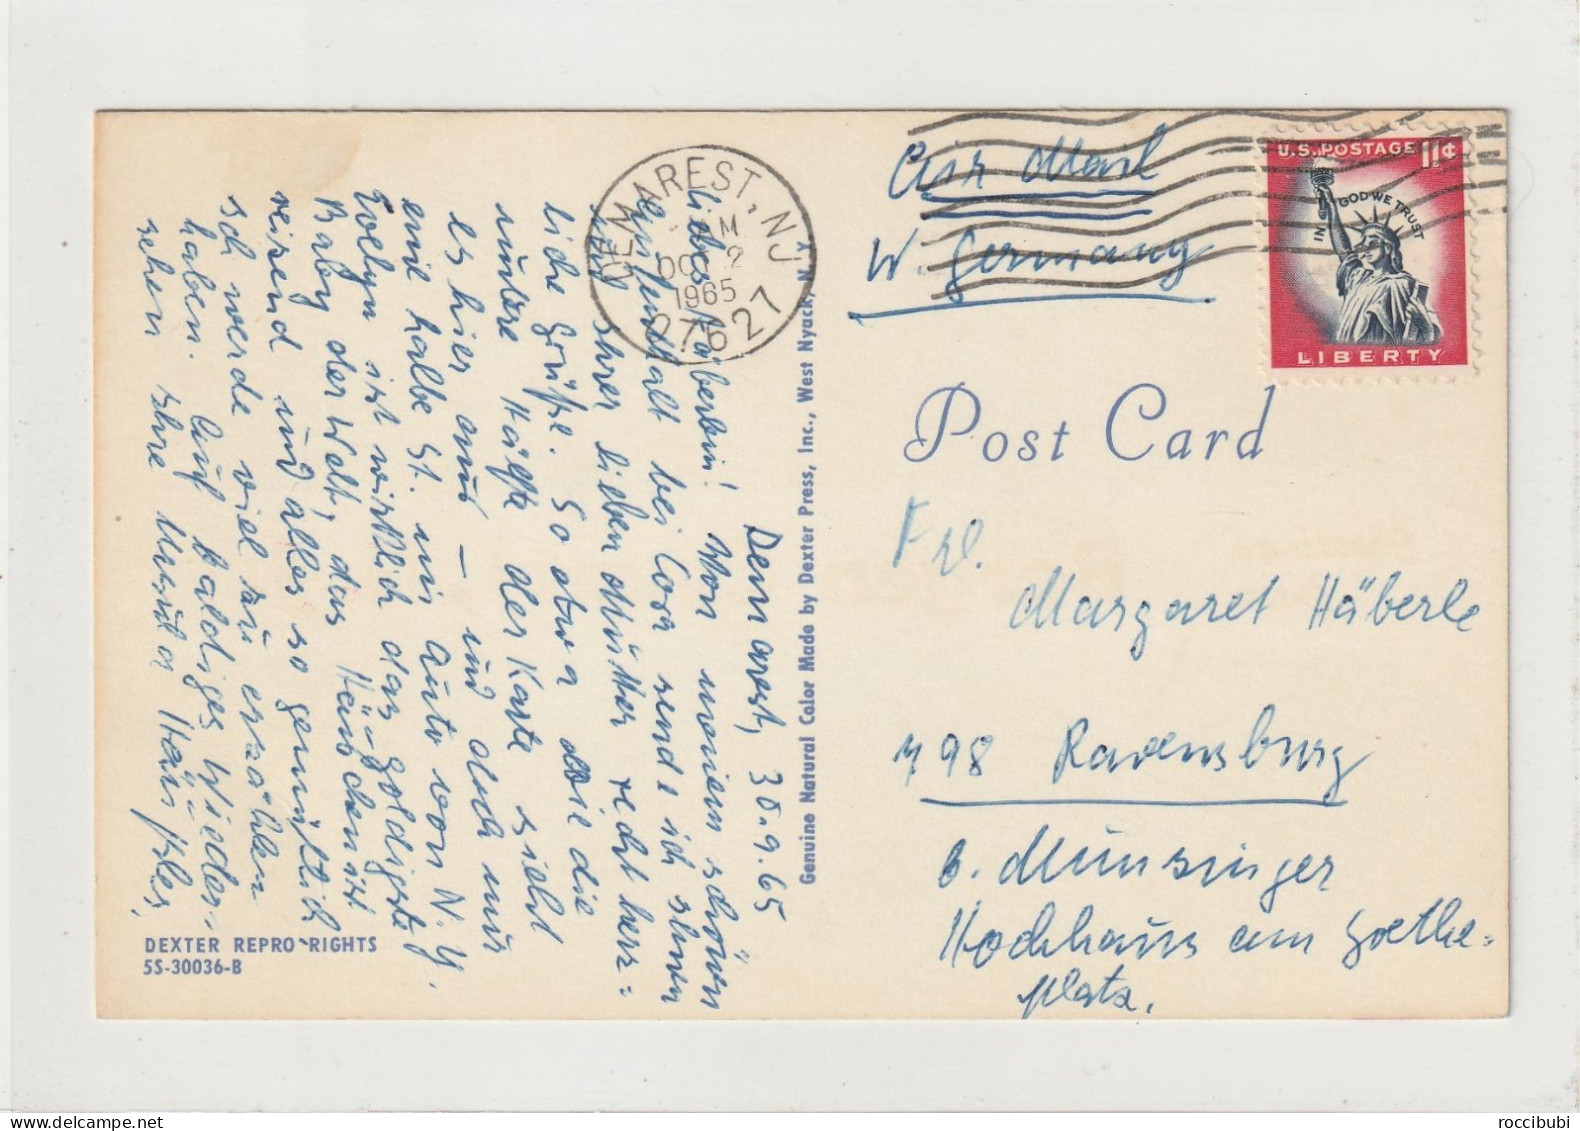 Demarest, 30.9.65
Liebes Häberlein! Von meinem schönen
Aufenthalt bei Cora sende ich Ihnen
und Ihrer lieben Mutter recht herz=
liche Grüße. So etwa wie die
untere Hälfte der Karte sieht
es hier aus – und doch nur
eine halbe St. mit Auto von N.Y.
Evelyn ist wirklich das goldigste
Baby der Welt, das Häuschen ist
reizend und alles so gemütlich
ich werde viel zu erzählen
haben. Auf baldiges Wieder-
sehen Ihre
DEXTER REPRO RIGHTS
5S-30036-B
Genuine Natural Color Made by Dexter Press, Inc., West Nyack, N.Y.
DEMAREST, N.J.
M
OC 2
1965
07627
U.S. POSTAGE 11¢
IN GOD WE TRUST
LIBERTY
Air Mail
W. Germany
Post Card
Frl.
Margaret Häberle
798 Ravensburg
b. Münsinger
Hochhaus am Goethe=
platz.
roccibubi